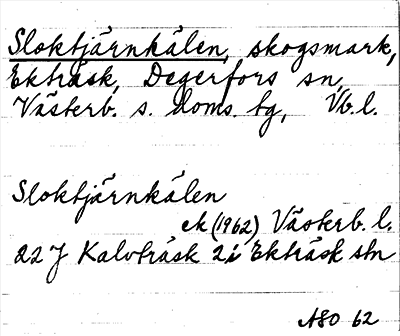 Sloktjärnkålen, skogsmark,
Ekträsk, Degerfors sn,
Västerb. s. doms. tg, Vb. l.
Sloktjärnkålen
ek (1962) Västerb. l.
22 J Kalvträsk 2 i Ekträsk stn
ASO 62